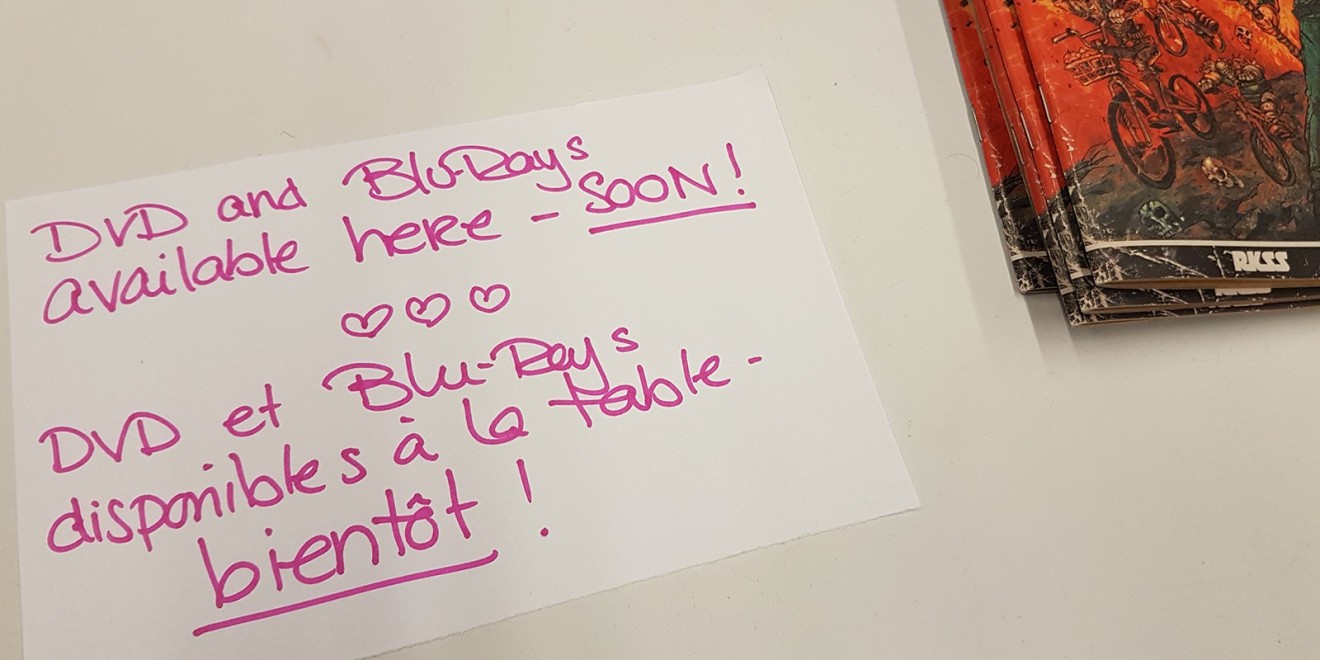 DVD and Blu-Rays
available here - SOON!
♡ ♡ ♡
DVD et Blu-Rays
disponibles à la table -
bientôt !
RKSS